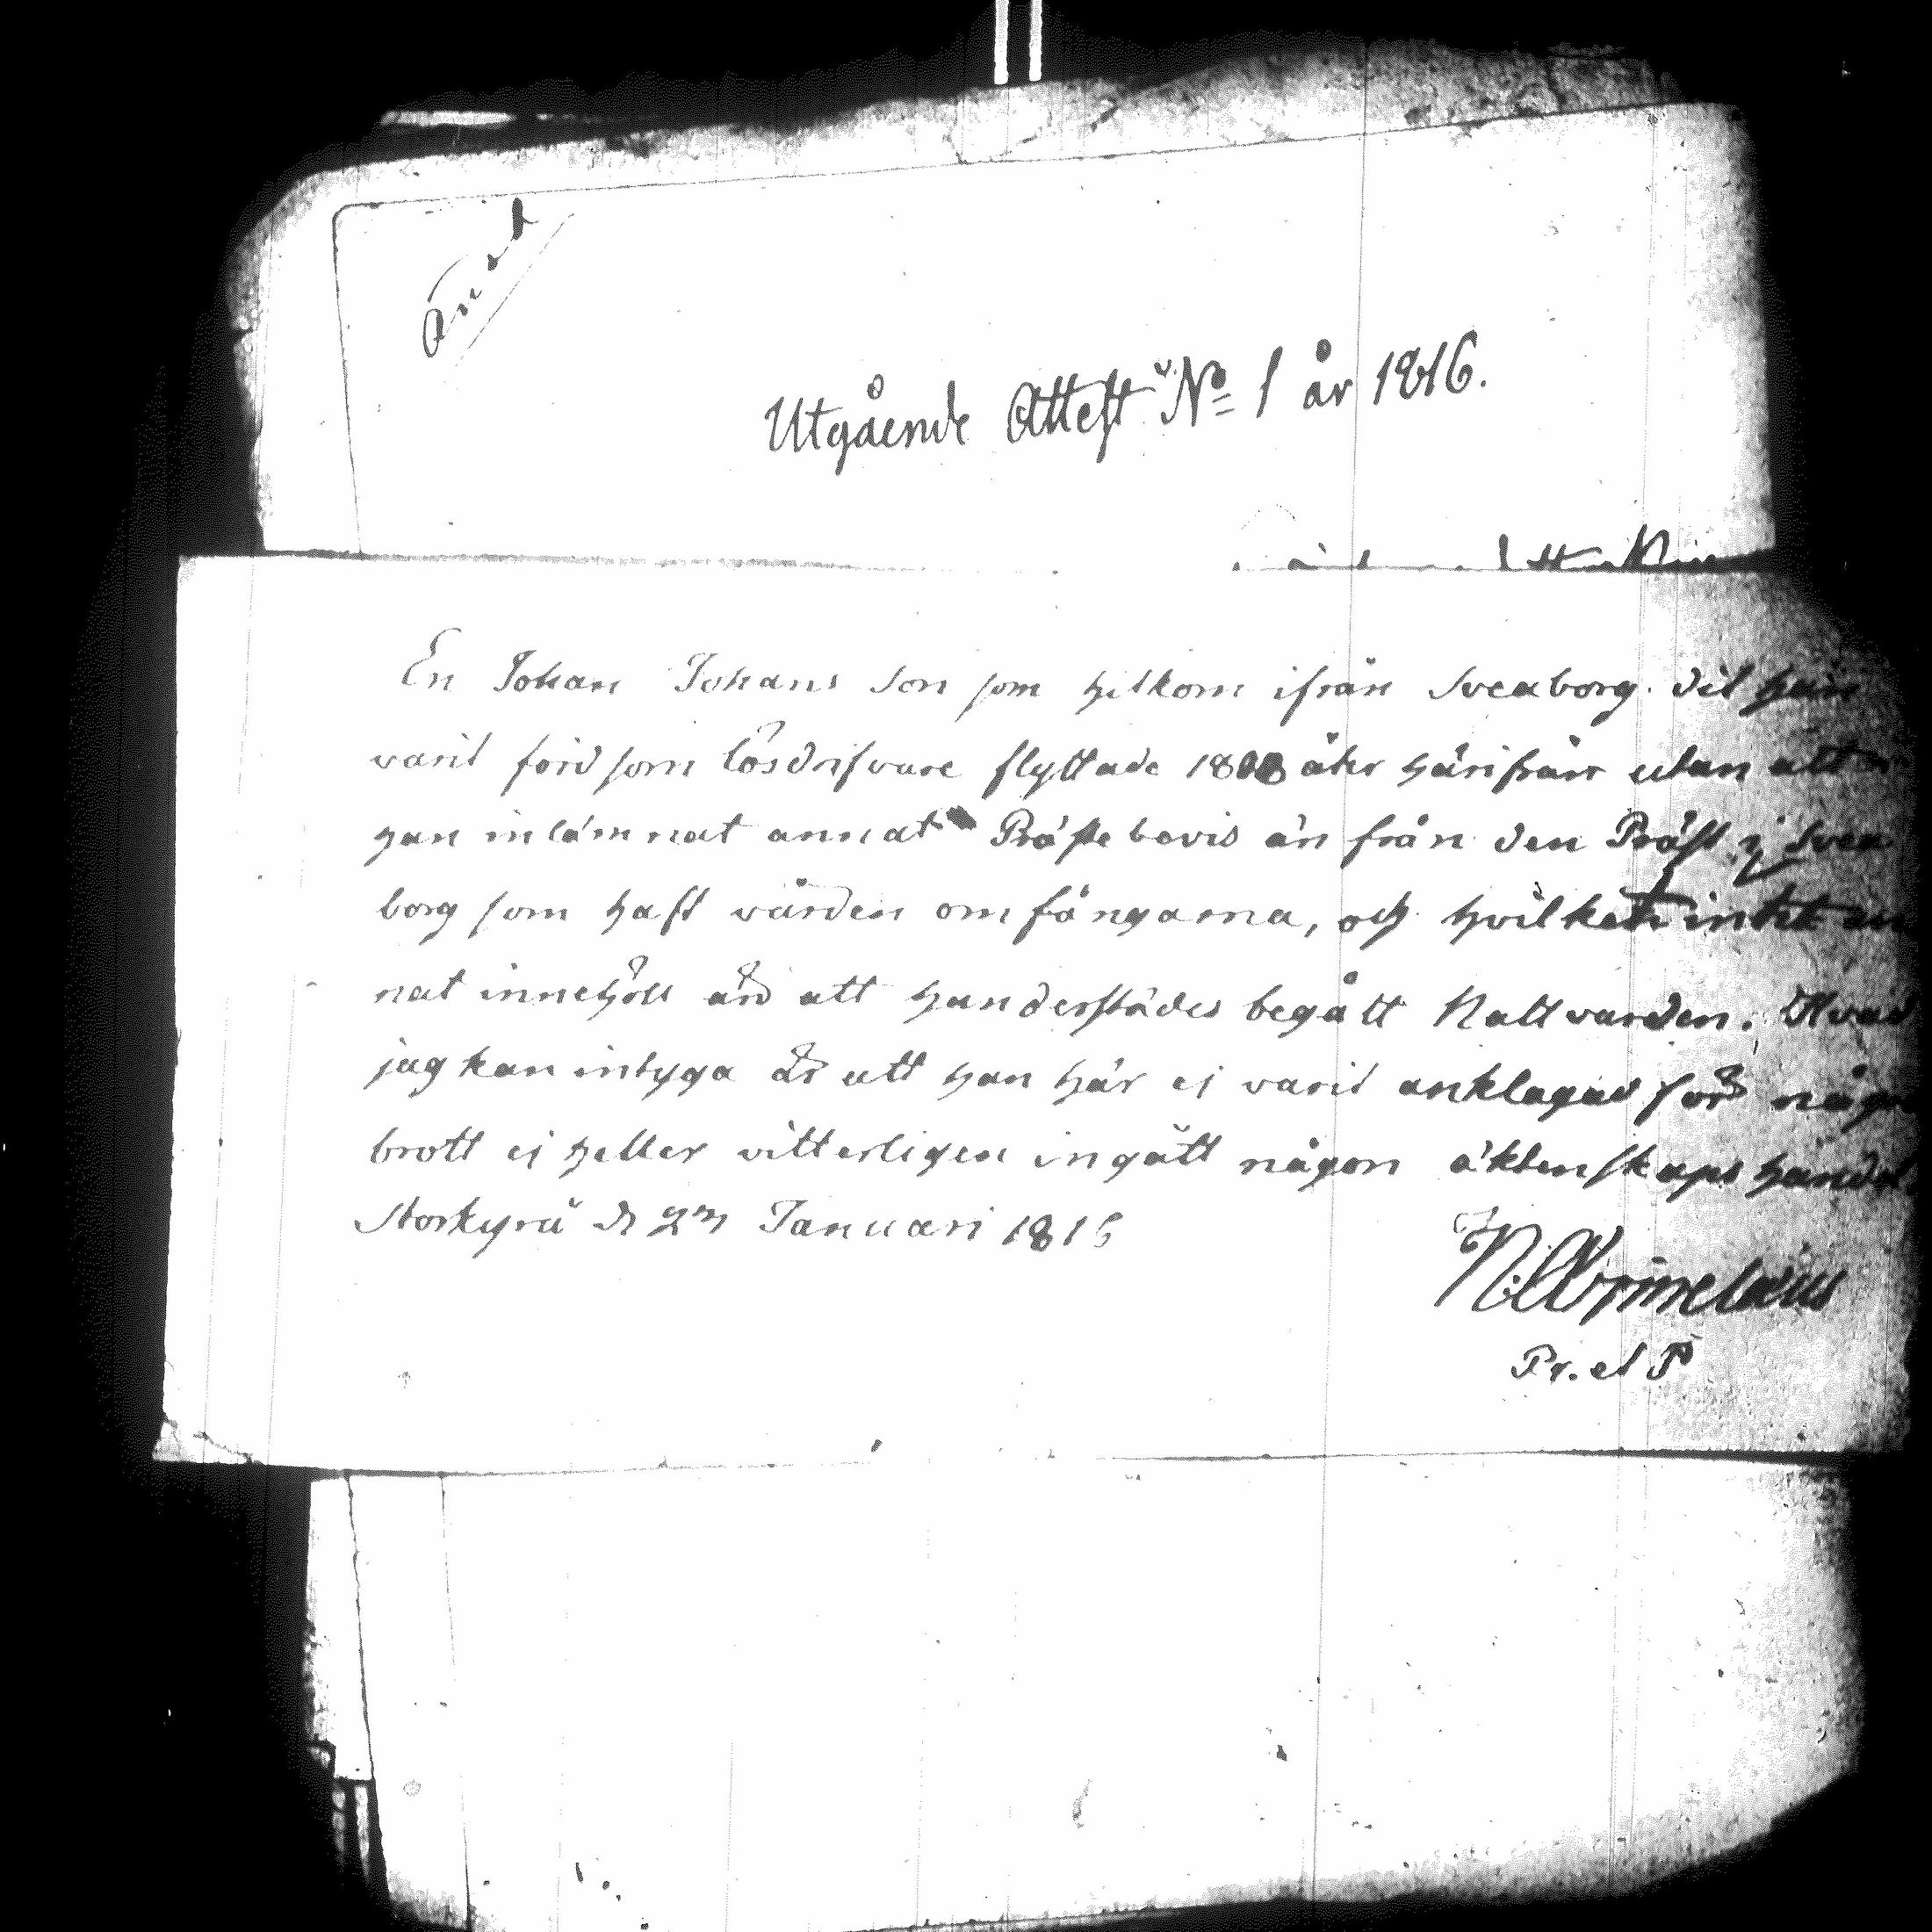 Utgående Attest No 1 år 1816.
En Johan Johans son som hitkom ifrån Sveaborg dit han
varit förd som lösdrifvare flyttade 1808 åhr härifrån utan att
han inlämnat annat Präste bevis än från den Präst i Svea
borg som haft vården om fångarna, och hvilket intet an
nat innehöll än att han derstädes begått Nattvarden. Hvad
jag kan intyga är att han här ej varit anklagad för någre
brott ej heller vitterligen ingått någon äktenskaps handel
Storkyrå d 27 Januari 1816
Pr. et P